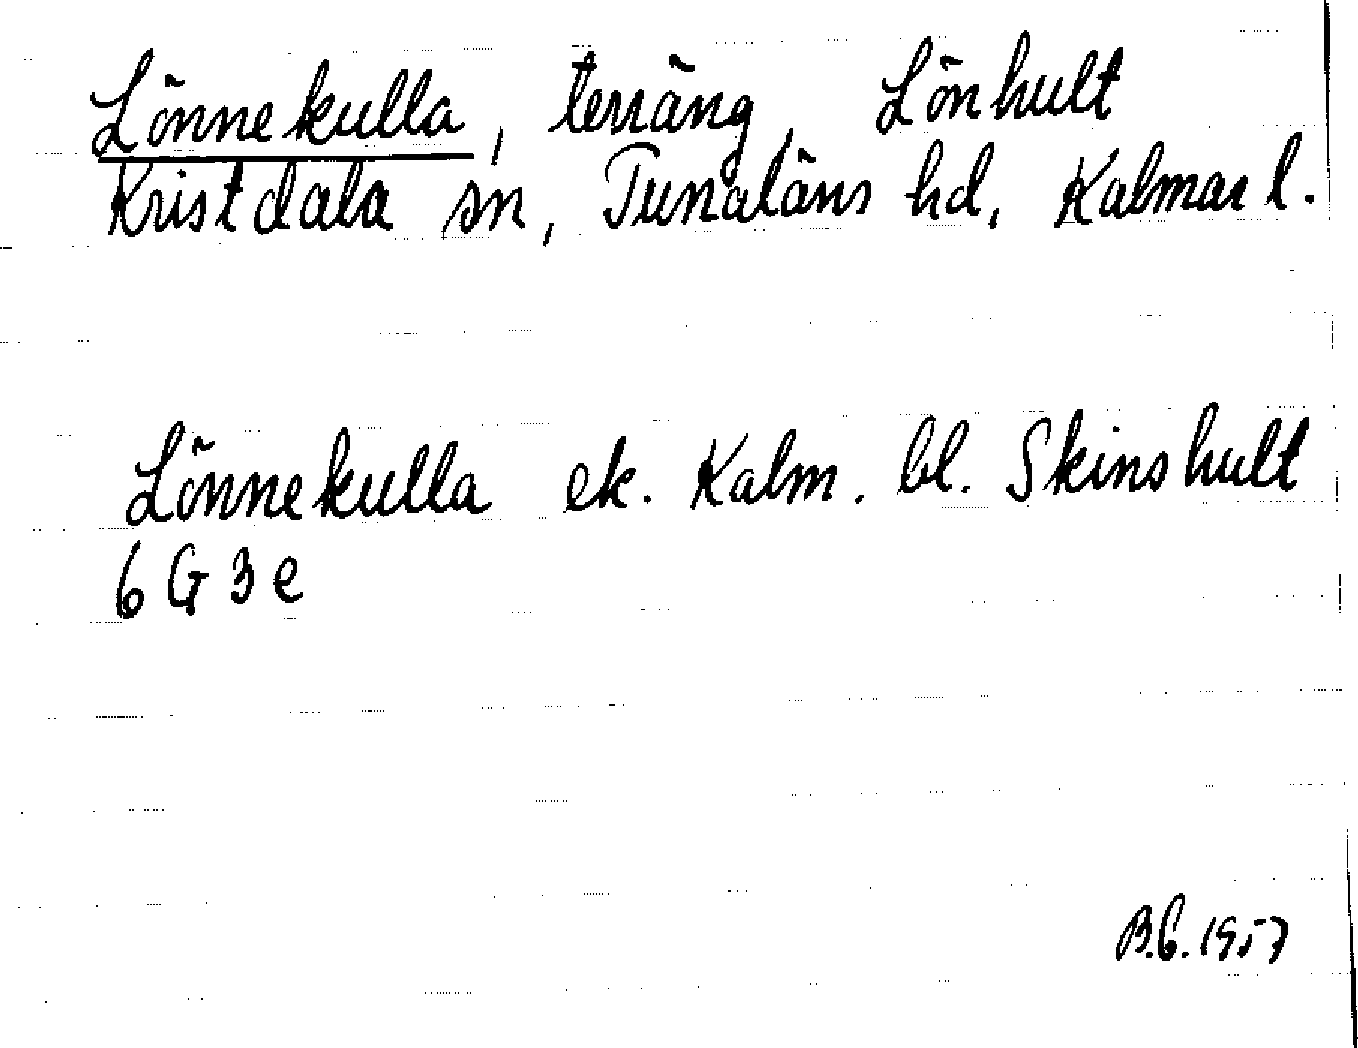 Lönnekulla, terräng, Lönhult
Kristdala sn, Tunaläns hd, Kalmar l.
Lönnekulla ek. Kalm. bl. Skinshult
6 G 3 e
B.G. 1957